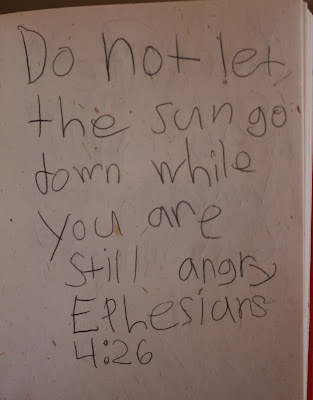 Do not let
the sun go
down while
you are
still angry
Ephesians
4:26